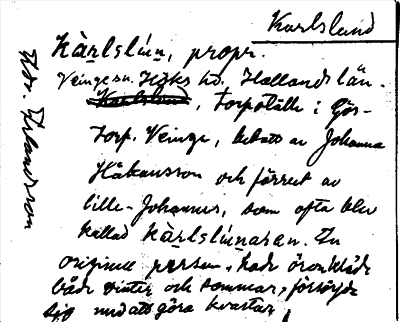 Karlslund
Kàrlslún, propr.
Veinge sn. Höks hd. Hallands län.
Karlslund, torpställe i Gös-
torp. Veinge, bebott av Johanna
Håkansson och förrut av
lille-Johannes, som ofta blev
kallad Kàrlslúnaren. En
originell person, hade öronkläde
både vinter och sommar, försörjde
sig med att göra kvastar!